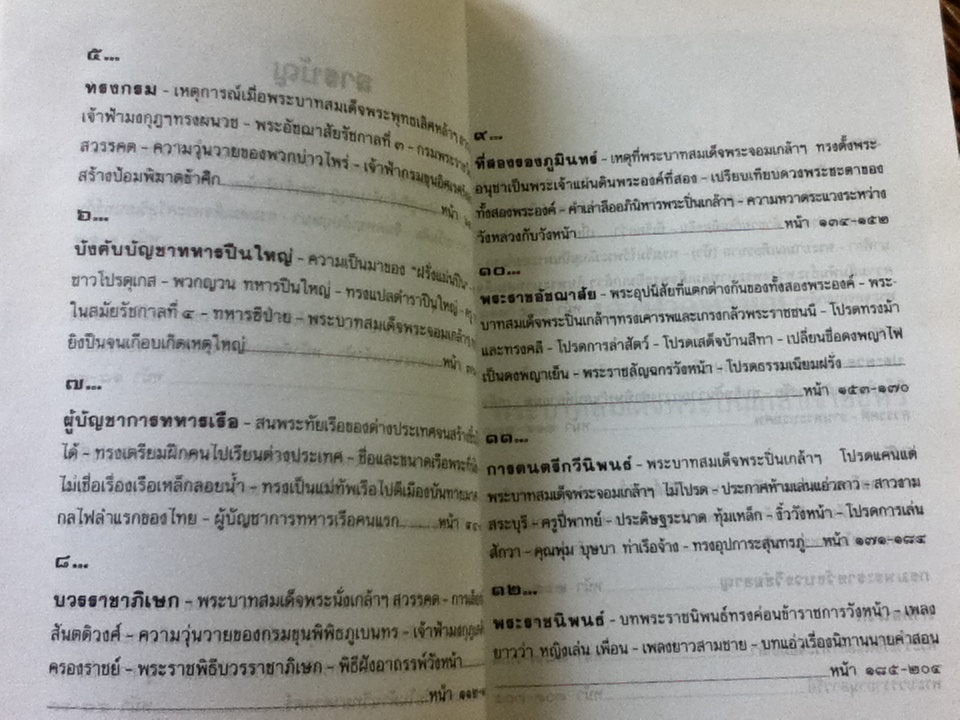 ๕...
ทรงกรม - เหตุการณ์เมื่อพระบาทสมเด็จพระพุทธเลิศหล้าฯ
เจ้าฟ้ามงกุฎฯทรงผนวช - พระอัชฌาสัยรัชกาลที่ ๓ - กรมพระราช
สวรรคต - ความวุ่นวายของพวกบ่าวไพร่ - เจ้าฟ้ากรมขุนอิศเรศ
สร้างป้อมพิฆาตข้าศึก หน้า
๖...
บังคับบัญชาทหารปืนใหญ่ - ความเป็นมาของ "ฝรั่งแม่นปืน
ชาวโปรตุเกส - พวกญวน ทหารปืนใหญ่ - ทรงแปลตำราปืนใหญ่ -
ในสมัยรัชกาลที่ ๔ - ทหารซีป่าย - พระบาทสมเด็จพระจอมเกล้าฯ
ยิงปืนจนเกือบเกิดเหตุใหญ่ หน้า
๗...
ผู้บัญชาการทหารเรือ - สนพระทัยเรือของต่างประเทศจนสร้าง
ได้ - ทรงเตรียมฝึกคนไปเรียนต่างประเทศ - ชื่อและขนาดเรือพระที่
ไม่เชื่อเรื่องเรือเหล็กลอยน้ำ - ทรงเป็นแม่ทัพเรือไปตีเมืองบันทายมาศ
กลไฟลำแรกของไทย - ผู้บัญชาการทหารเรือคนแรก หน้า
๘...
บวรราชาภิเษก - พระบาทสมเด็จพระนั่งเกล้าฯ สวรรคต -
สันตติวงศ์ - ความวุ่นวายของกรมขุนพิพิธภูเบนทร - เจ้าฟ้ามงกุฎ
ครองราชย์ - พระราชพิธีบวรราชาภิเษก - พิธีฝังอาถรรพ์วังหน้า
หน้า
๙...
ที่สองของภูมินทร์ - เหตุที่พระบาทสมเด็จพระจอมเกล้าฯ ทรงตั้งพระ-
อนุชาเป็นพระเจ้าแผ่นดินพระองค์ที่สอง - เปรียบเทียบดวงพระชะตาของ
ทั้งสองพระองค์ - คำเล่าลืออภินิหารพระปิ่นเกล้าฯ - ความหวาดระแวงระหว่าง
วังหลวงกับวังหน้า หน้า ๑๓๔-๑๕๒
๑๐...
พระราชอัชฌาสัย - พระอุปนิสัยที่แตกต่างกันของทั้งสองพระองค์ - พระ-
บาทสมเด็จพระปิ่นเกล้าฯทรงเคารพและเกรงกลัวพระราชชนนี - โปรดทรงม้า
และทรงคลี - โปรดการล่าสัตว์ - โปรดเสด็จบ้านสีทา - เปลี่ยนชื่อดงพญาไฟ
เป็นดงพญาเย็น - พระราชลัญฉกรวังหน้า - โปรดธรรมเนียมฝรั่ง
หน้า ๑๕๓-๑๗๐
๑๑...
การดนตรีกวีนิพนธ์ - พระบาทสมเด็จพระปิ่นเกล้าฯ โปรดแคนแต่
พระบาทสมเด็จพระจอมเกล้าฯ ไม่โปรด - ประกาศห้ามเล่นแอ่วลาว - สาวงาม
สระบุรี - ครูปี่พาทย์ - ประดิษฐระนาด ทุ้มเหล็ก - งิ้ววังหน้า - โปรดการเล่น
สักวา - คุณพุ่ม บุษบา ท่าเรือจ้าง - ทรงอุปการะสุนทรภู่ หน้า ๑๗๑-๑๘๔
๑๒...
พระราชนิพนธ์ - บทพระราชนิพนธ์ทรงค่อนข้าราชการวังหน้า - เพลง
ยาวว่า หญิงเล่น เพื่อน - เพลงยาวสามชาย - บทแอ่วเรื่องนิทานนายคำสอน
หน้า ๑๘๕-๒๐๔